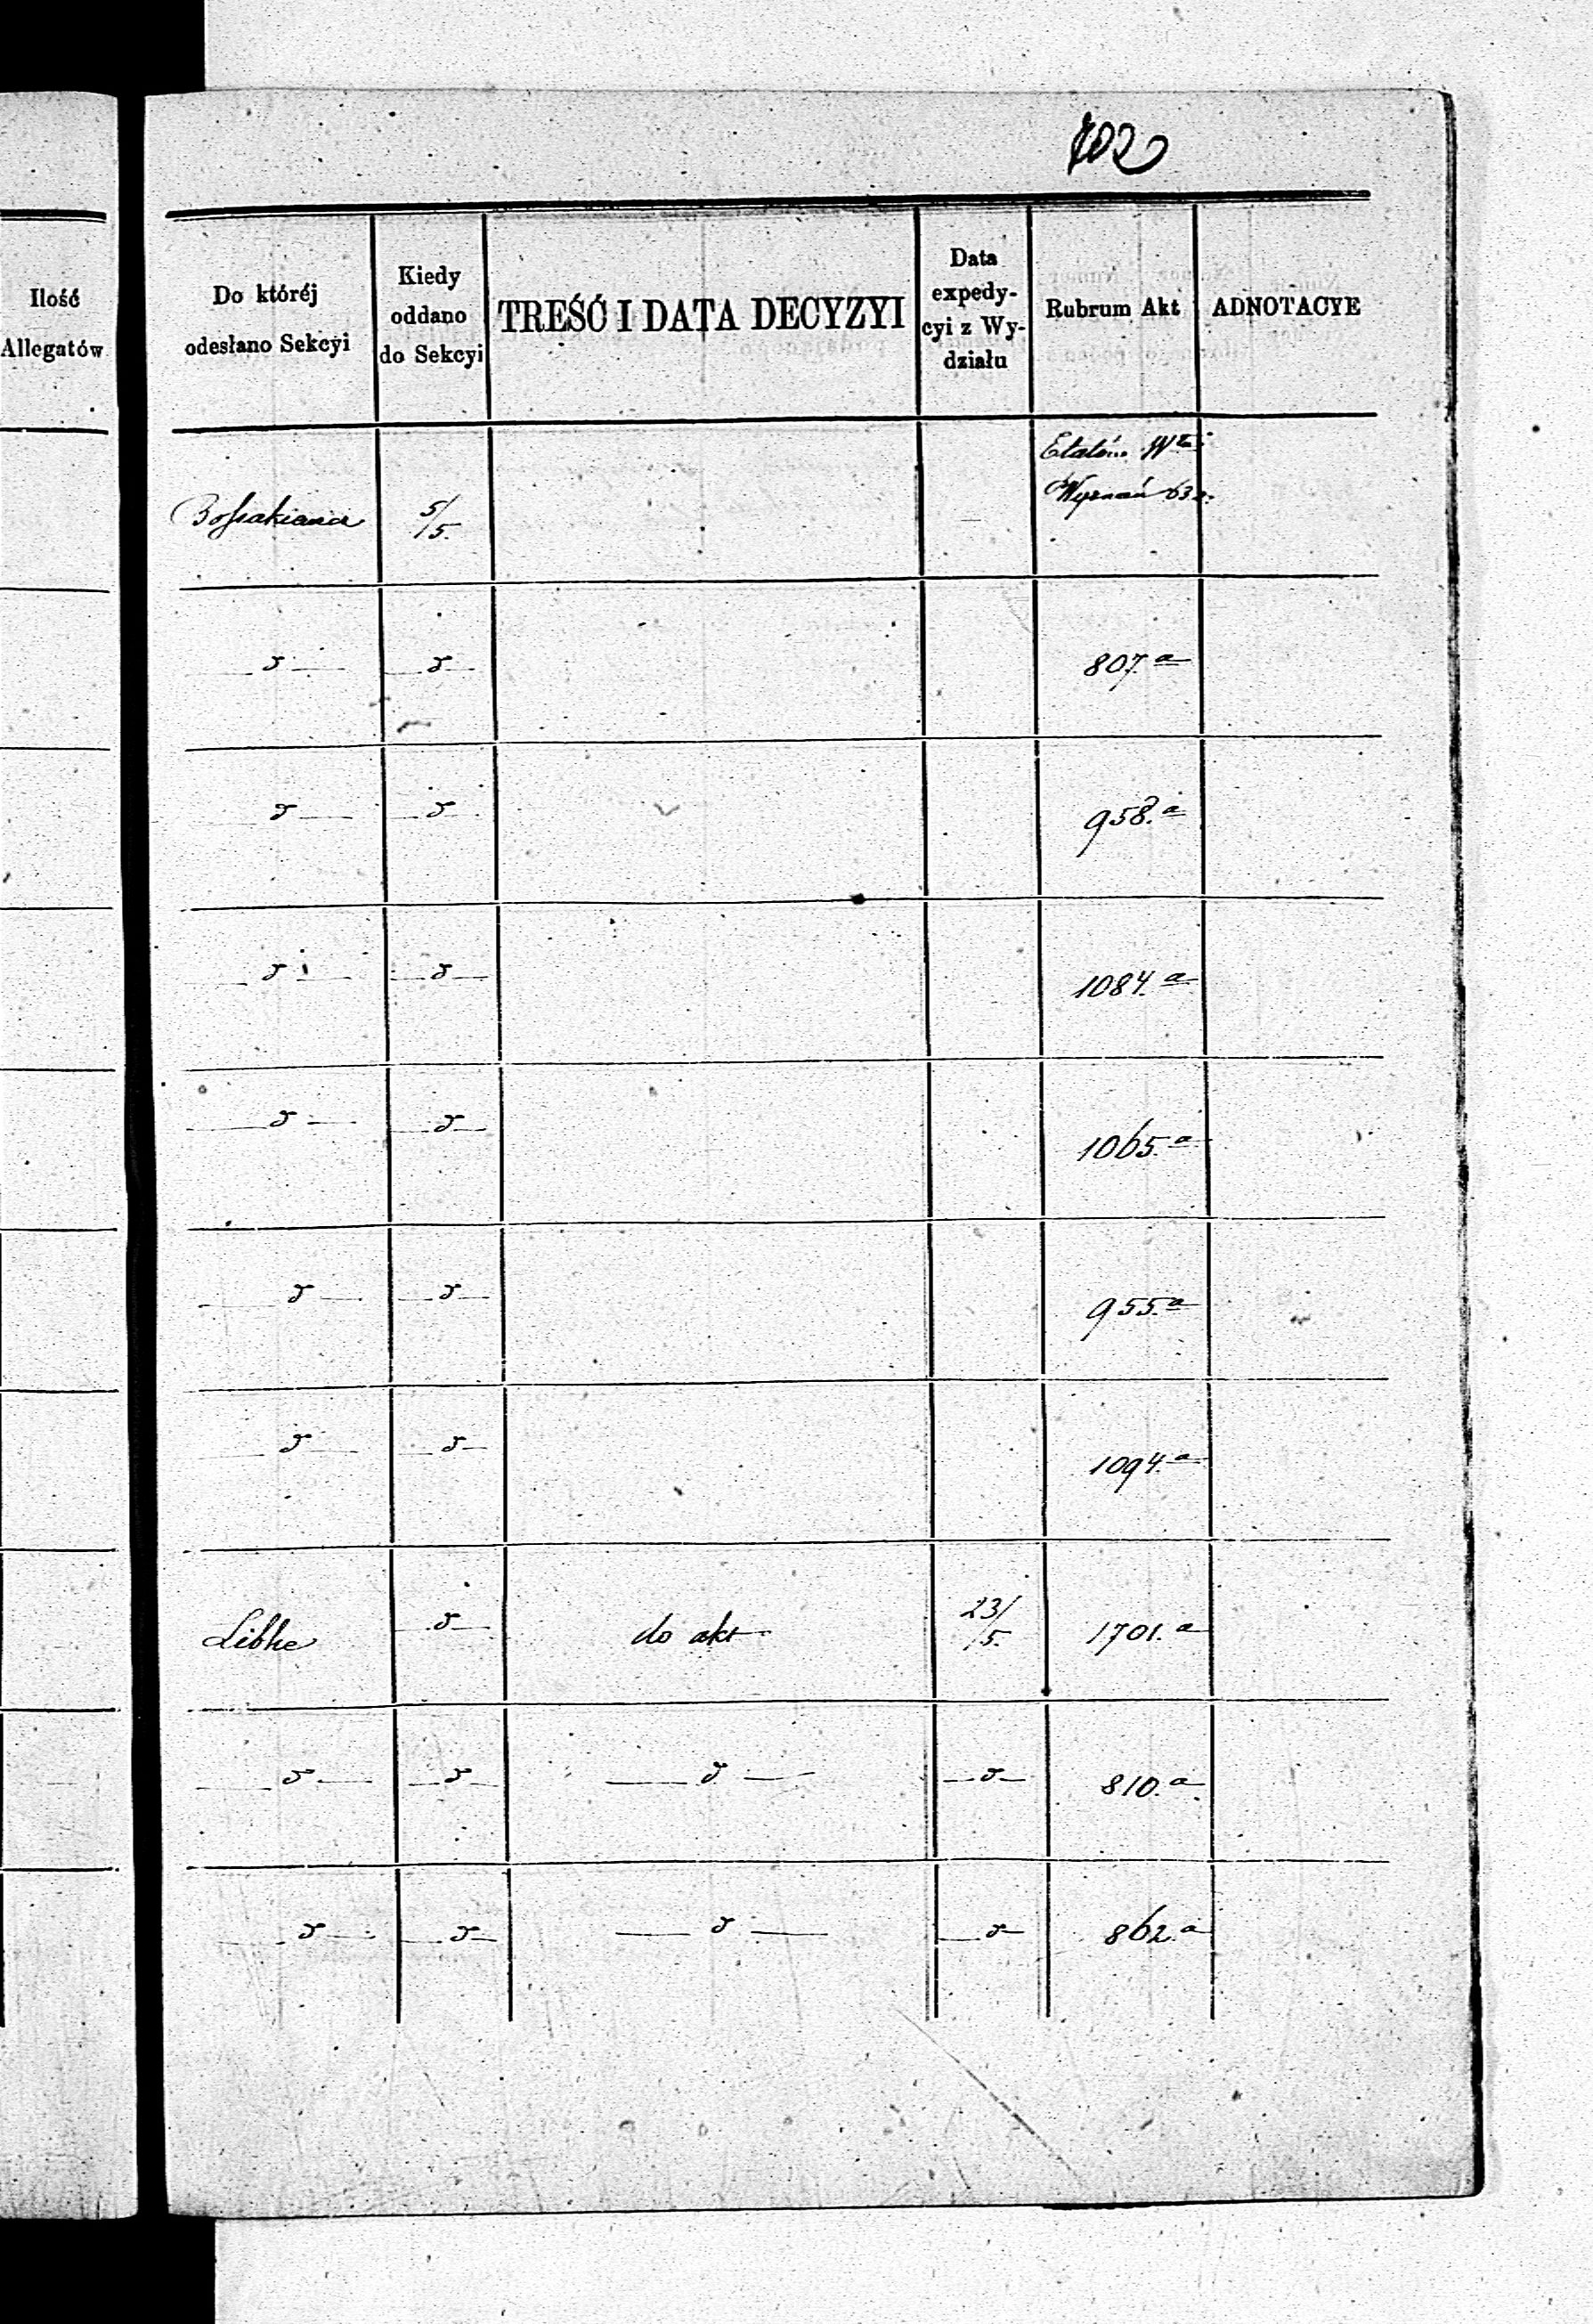 102
Ilość
Allegatów
Do któréj
odesłano Sekcyi
Kiedy
oddano
do Sekcyi
TREŚĆ I DATA DECYZYI
Data
expedy-
cyi z Wy-
działu
Rubrum Akt
ADNOTACYE
5/5.
Wyznań 63 a.
" " 807. a
" " 958. a
" " 1084. a
" " 1065. a
" " 955. a
" " 1094. a
Libke " do akt 23/5. 1701. a
" " " " 810. a
" " " " 862. a